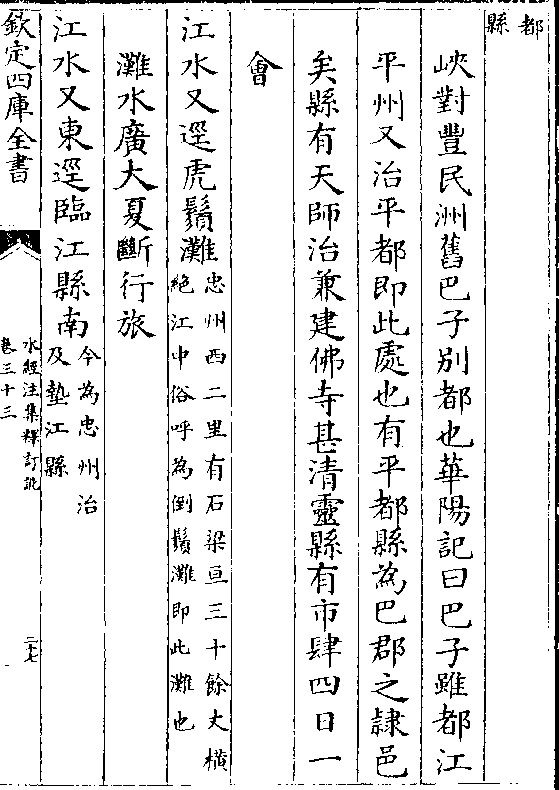 都
縣
峽對豐民洲舊巴子别都也華陽記曰巴子雖都江
平州又治平都即此處也有平都縣為巴郡之隷邑
矣縣有天師治兼建佛寺甚清靈縣有市肆四日一
會
江水又逕虎鬚灘忠州西二里有石梁亘三十餘丈橫
絶江中俗呼為倒鬚灘即此灘也
灘水廣大夏斷行旅
江水又東逕臨江縣南今為忠州治
及墊江縣
欽定四庫全書
水經注集釋訂訛
卷三十三
二七